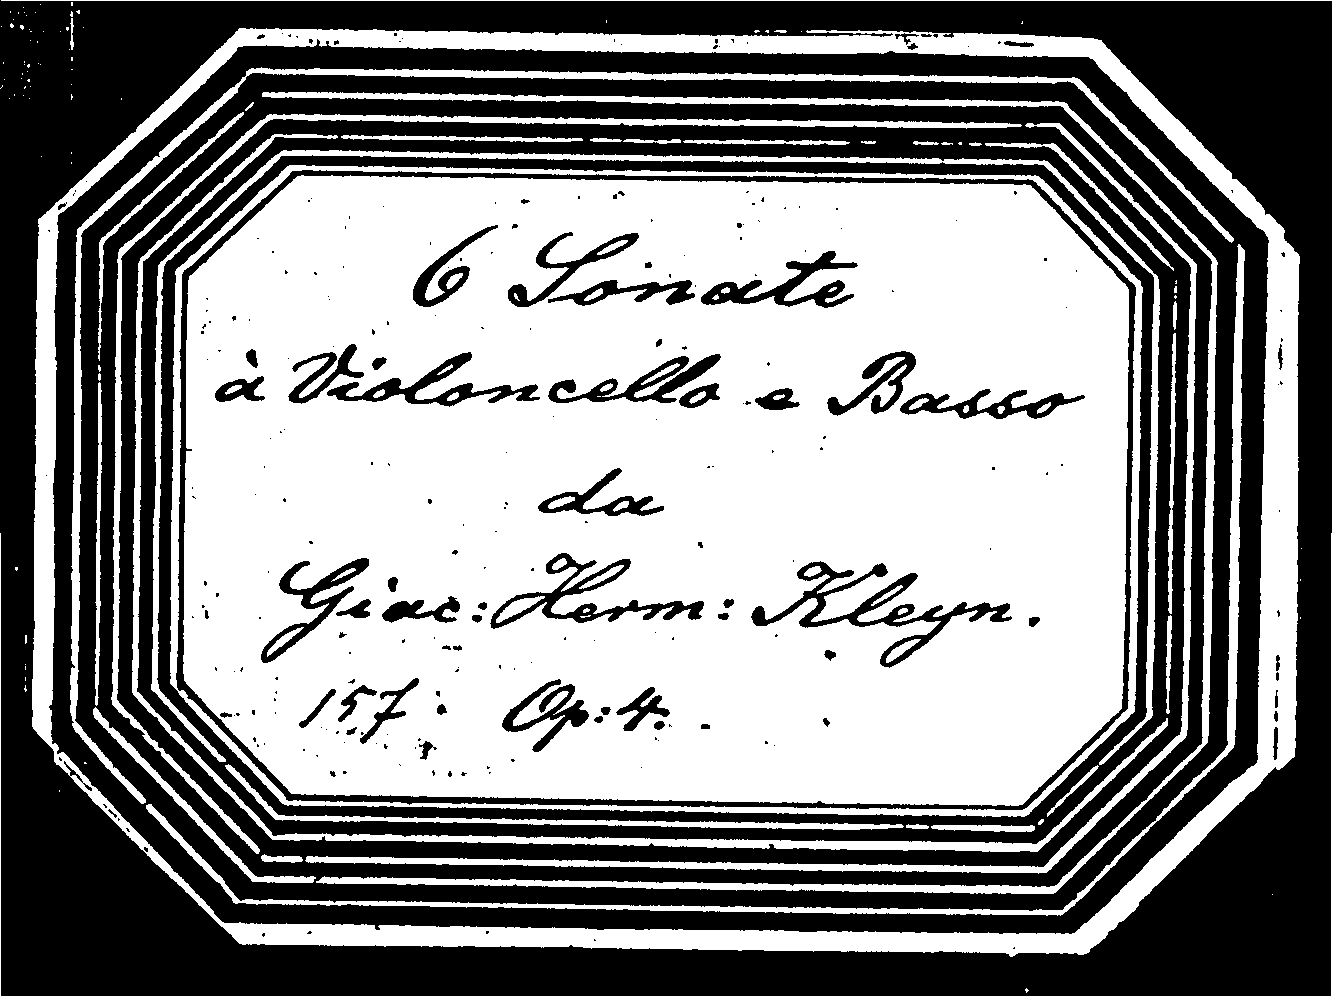 6 Sonate
à Violoncello e Basso
da
Giac: Herm: Kleyn.
157. Op: 4.